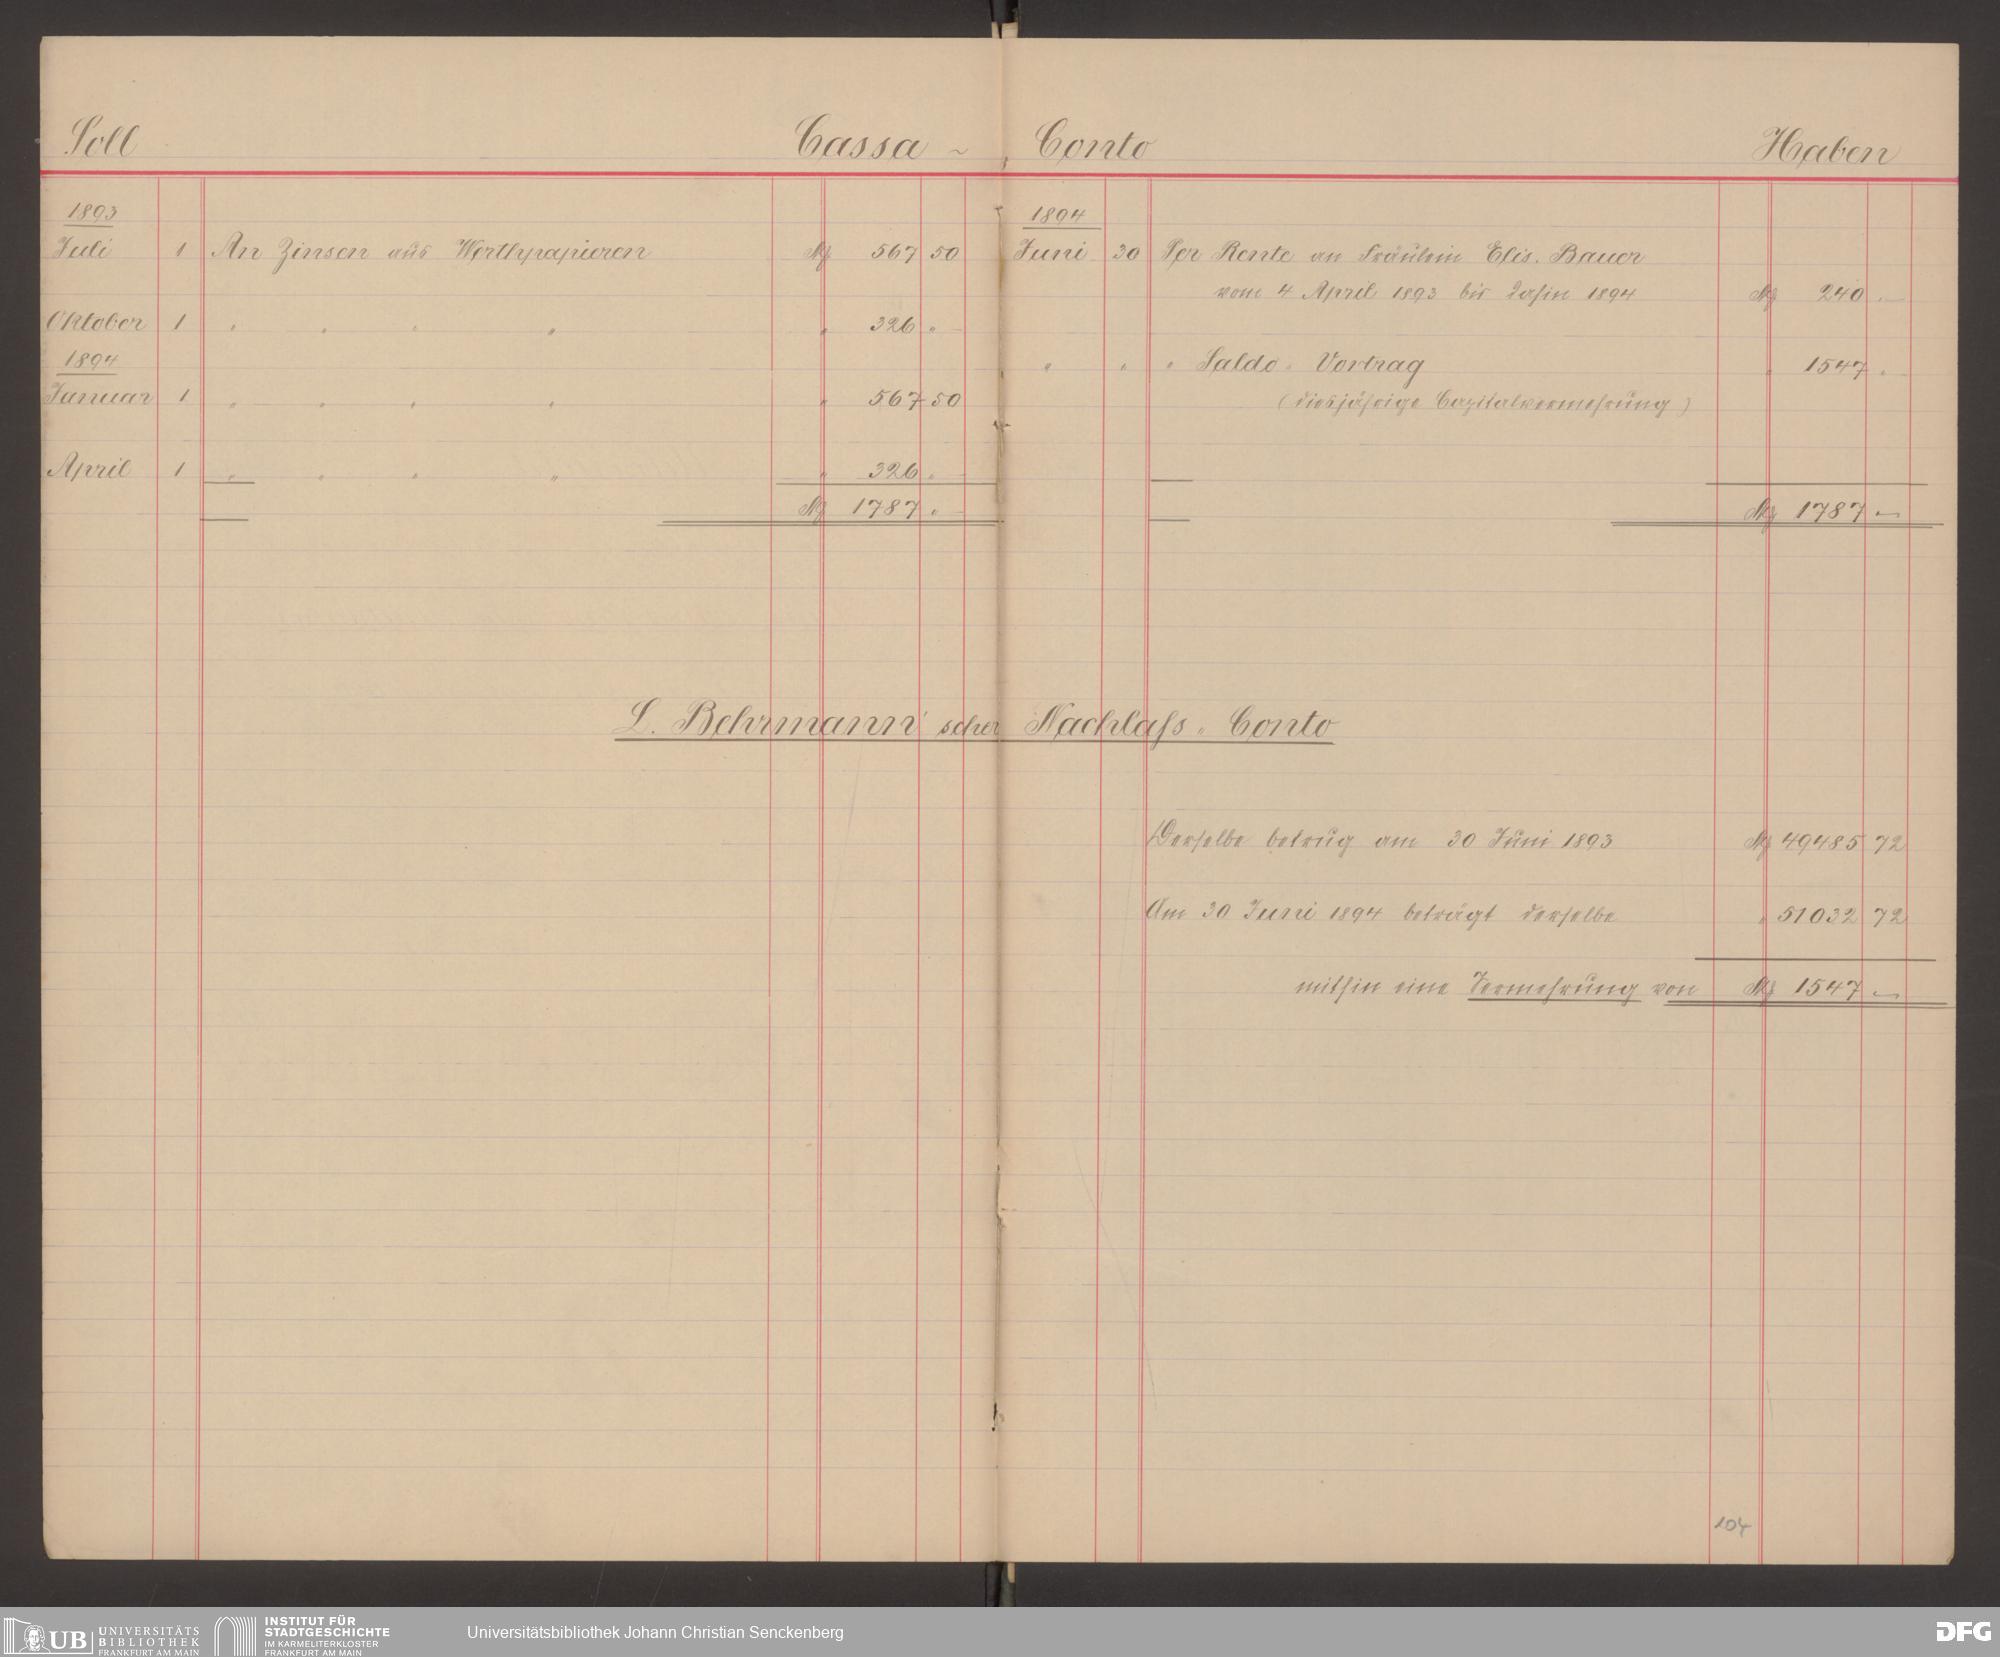 Soll Cassa ~ Conto Haben
1893
Juli 1 An Zinsen aus Werthpapieren M 567 50
Oktober 1 " " " " " 326 "
1894
Januar 1 " " " " " 567 50
April 1 " " " " " 326 "
M 1787 "
1894
Juni 30 Per Rente an Fräulein Elis. Bauer
vom 4 April 1893 bis dahin 1894 M 240 . —
" " " Saldo - Vortrag " 1547 "
(diesjährige Capitalvermehrung)
M 1787 —
L. Behrmann'scher Nachlaſs - Conto
Derselbe betrug am 30 Juni 1893 M 49485 72
Am 30 Juni 1894 beträgt derselbe " 51032 72
mithin eine Vermehrung von M 1547 —
104
UB UNIVERSITÄTS
BIBLIOTHEK
FRANKFURT AM MAIN
INSTITUT FÜR
STADTGESCHICHTE
IM KARMELITERKLOSTER
FRANKFURT AM MAIN
Universitätsbibliothek Johann Christian Senckenberg
DFG